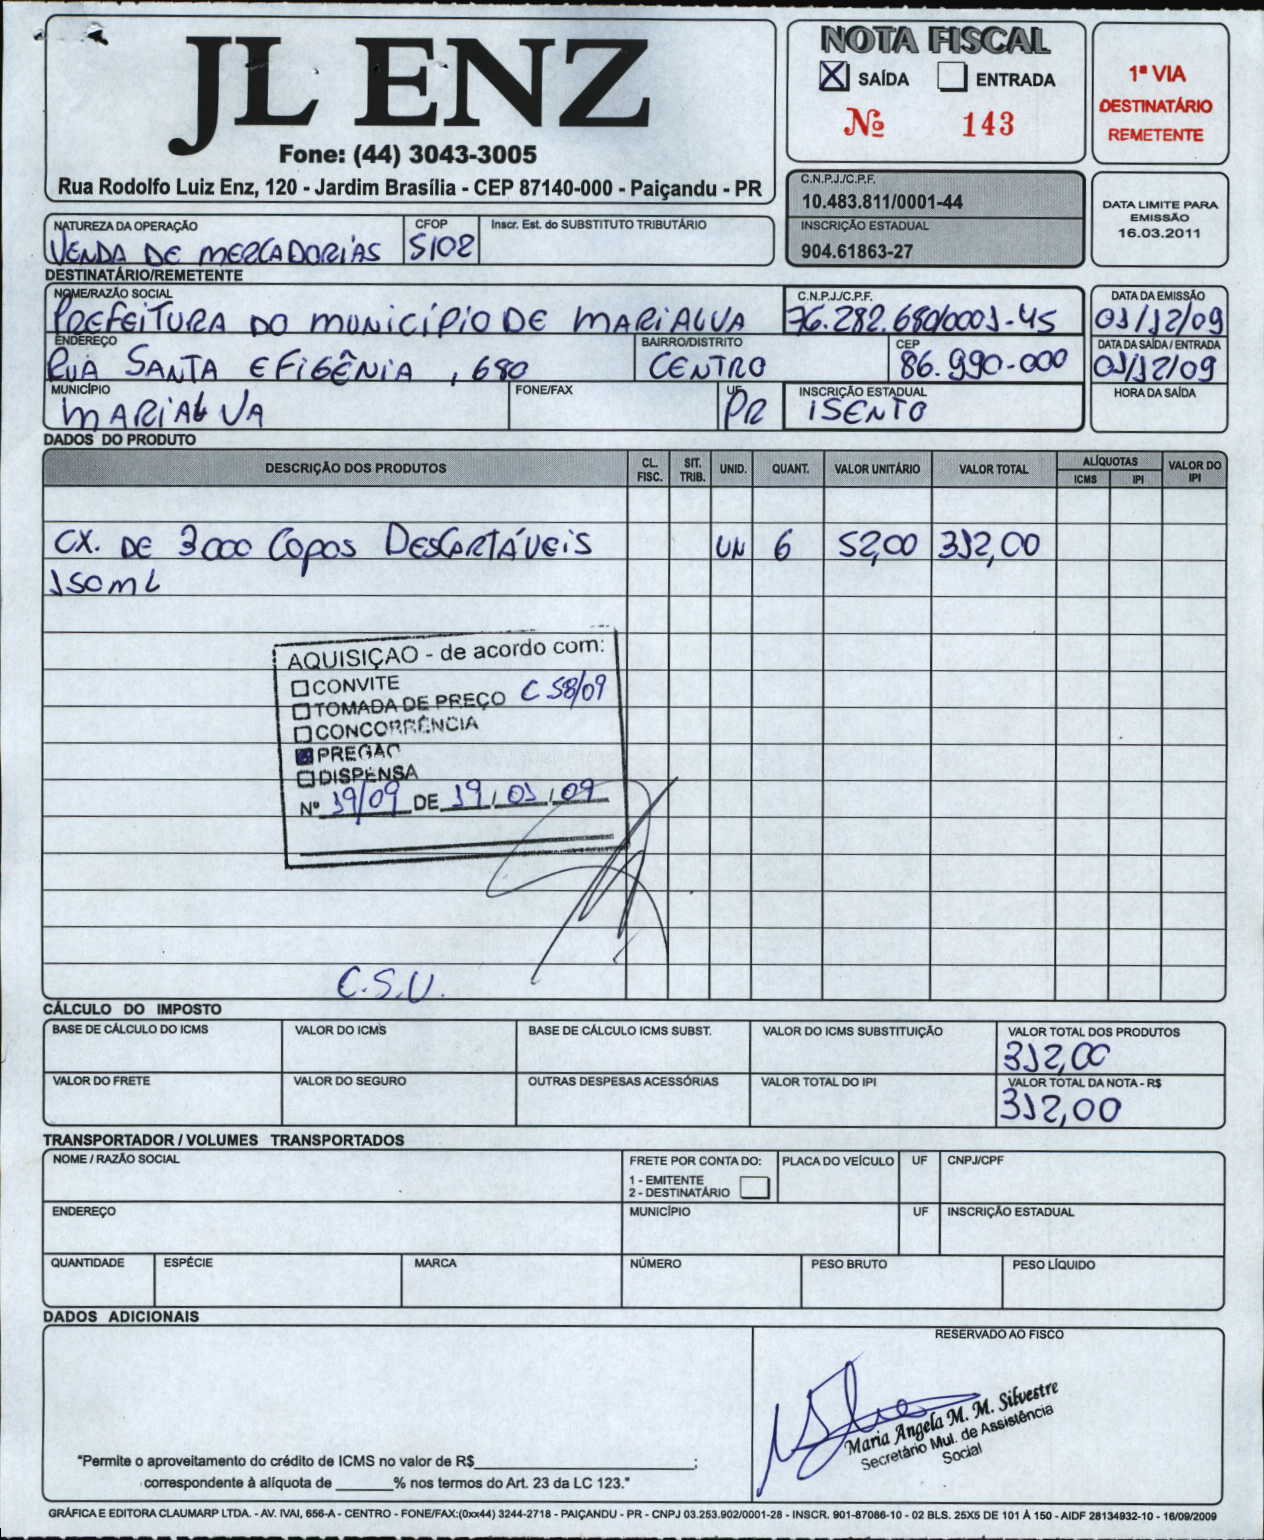 JL ENZ
Fone: (44) 3043-3005
Rua Rodolfo Luiz Enz, 120 - Jardim Brasília - CEP 87140-000 - Paiçandu - PR
NOTA FISCAL
X SAÍDA ENTRADA
Nº 143
1ª VIA
DESTINATÁRIO
REMETENTE
C.N.P.J./C.P.F.
10.483.811/0001-44
INSCRIÇÃO ESTADUAL
904.61863-27
DATA LIMITE PARA
EMISSÃO
16.03.2011
NATUREZA DA OPERAÇÃO CFOP Inscr. Est. do SUBSTITUTO TRIBUTÁRIO
VENDA DE MERCADORIAS 5102
DESTINATÁRIO/REMETENTE
NOME/RAZÃO SOCIAL C.N.P.J./C.P.F. DATA DA EMISSÃO
PREFEITURA DO MUNICÍPIO DE MARIALVA 76.282.680/0001-45 01/12/09
ENDEREÇO BAIRRO/DISTRITO CEP DATA DA SAÍDA / ENTRADA
RUA SANTA EFIGÊNIA, 680 CENTRO 86.990-000 01/12/09
MUNICÍPIO FONE/FAX UF INSCRIÇÃO ESTADUAL HORA DA SAÍDA
MARIALVA PR ISENTO
DADOS DO PRODUTO
DESCRIÇÃO DOS PRODUTOS CL. FISC. SIT. TRIB. UNID. QUANT. VALOR UNITÁRIO VALOR TOTAL ALÍQUOTAS ICMS IPI VALOR DO IPI
CX. DE 3000 COPOS DESCARTÁVEIS UN 6 52,00 312,00
150ML
AQUISIÇAO - de acordo com:
CONVITE
TOMADA DE PREÇO C 58/09
CONCORRÊNCIA
PREGAO
DISPENSA
Nº 19/09 DE 19/01/09
C.S.U.
CÁLCULO DO IMPOSTO
BASE DE CÁLCULO DO ICMS VALOR DO ICMS BASE DE CÁLCULO ICMS SUBST. VALOR DO ICMS SUBSTITUIÇÃO VALOR TOTAL DOS PRODUTOS
312,00
VALOR DO FRETE VALOR DO SEGURO OUTRAS DESPESAS ACESSÓRIAS VALOR TOTAL DO IPI VALOR TOTAL DA NOTA - R$
312,00
TRANSPORTADOR / VOLUMES TRANSPORTADOS
NOME / RAZÃO SOCIAL FRETE POR CONTA DO: PLACA DO VEÍCULO UF CNPJ/CPF
1 - EMITENTE
2 - DESTINATÁRIO
ENDEREÇO MUNICÍPIO UF INSCRIÇÃO ESTADUAL
QUANTIDADE ESPÉCIE MARCA NÚMERO PESO BRUTO PESO LÍQUIDO
DADOS ADICIONAIS
RESERVADO AO FISCO
Maria Angela M. M. Silvestre
Secretário Mul. de Assistência
Social
"Permite o aproveitamento do crédito de ICMS no valor de R$______;
correspondente à alíquota de ______% nos termos do Art. 23 da LC 123."
GRÁFICA E EDITORA CLAUMARP LTDA. - AV. IVAI, 656-A - CENTRO - FONE/FAX:(0xx44) 3244-2718 - PAIÇANDU - PR - CNPJ 03.253.902/0001-28 - INSCR. 901-87086-10 - 02 BLS. 25X5 DE 101 À 150 - AIDF 28134932-10 - 16/09/2009